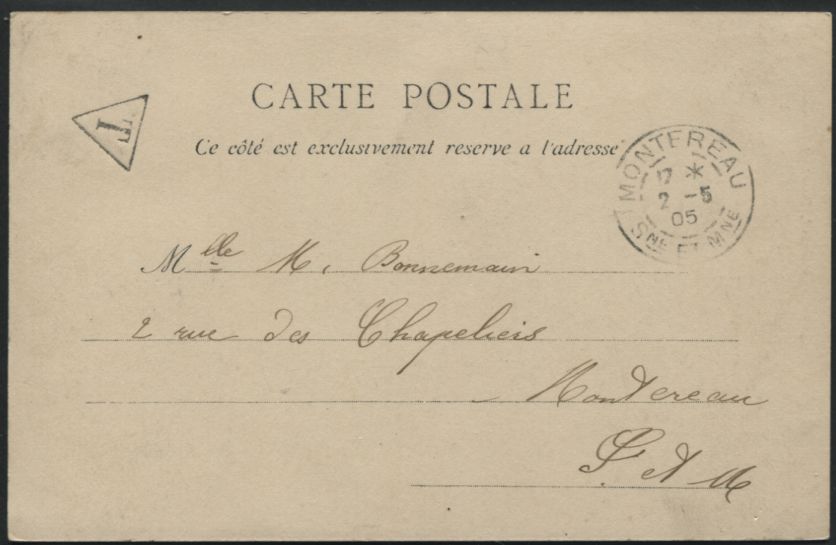 CARTE POSTALE
T
Ce côté est exclusivement reserve a l'adresse
MONTEREAU
17 *
2 -5
05
SNE ET MNE
Mlle M. Bonnemain
2 rue des Chapeliers
Montereau
S. et M